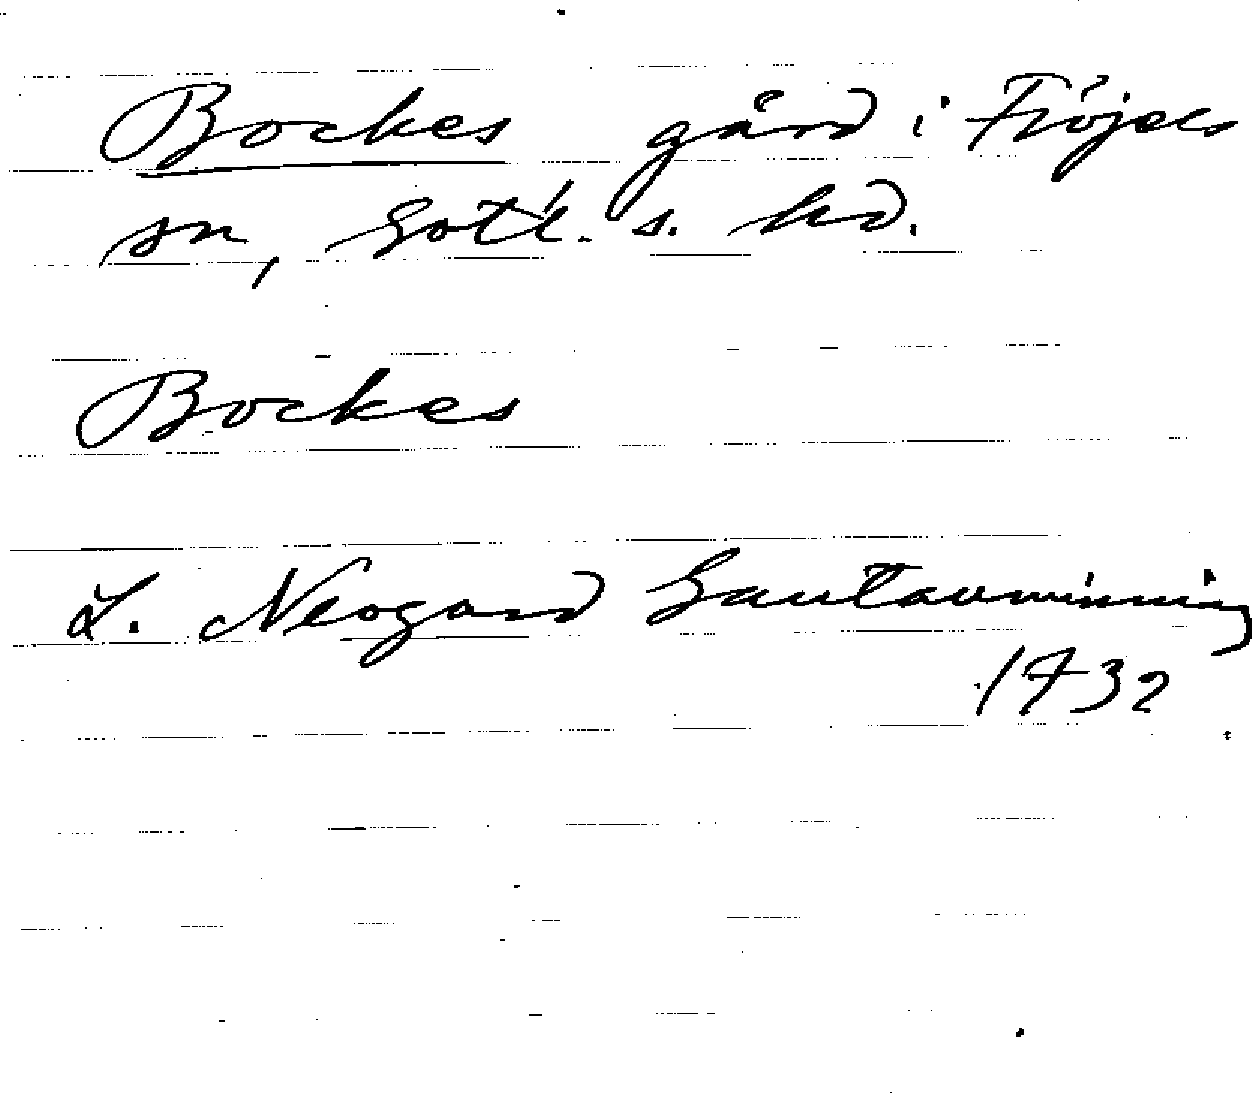 Bockes gård i Fröjels
sn, Gotl. s. hd.
Bockes
L. Neogard Gautauminning
1732